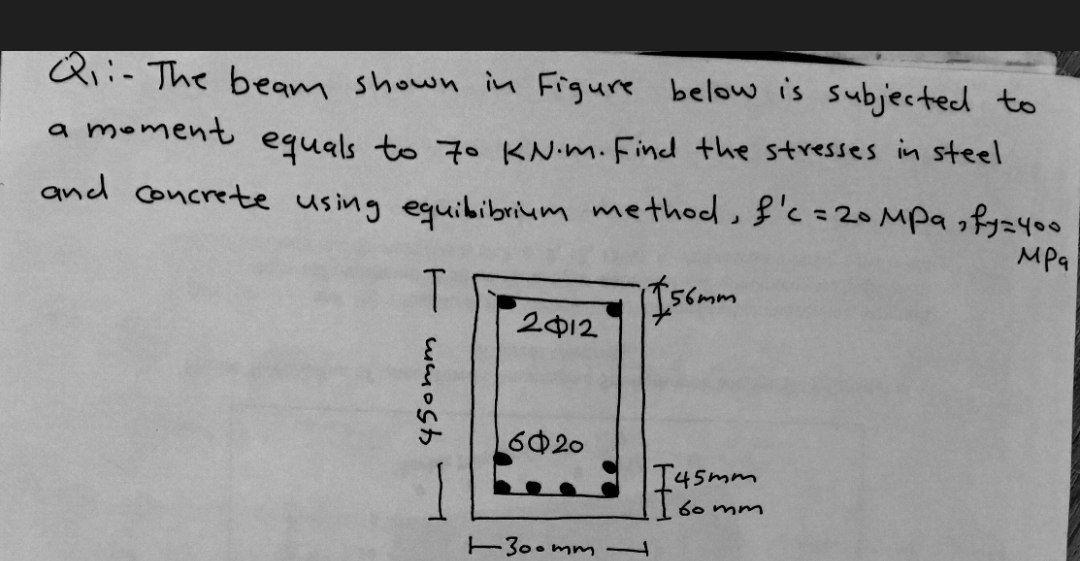 Q1:- The beam shown in Figure below is subjected to
a moment equals to 70 KN.m. Find the stresses in steel
and concrete using equibibrium method, f'c = 20 MPa, fy=400
MPa
56mm
2Φ12
450mm
6Φ20
45mm
60 mm
300mm